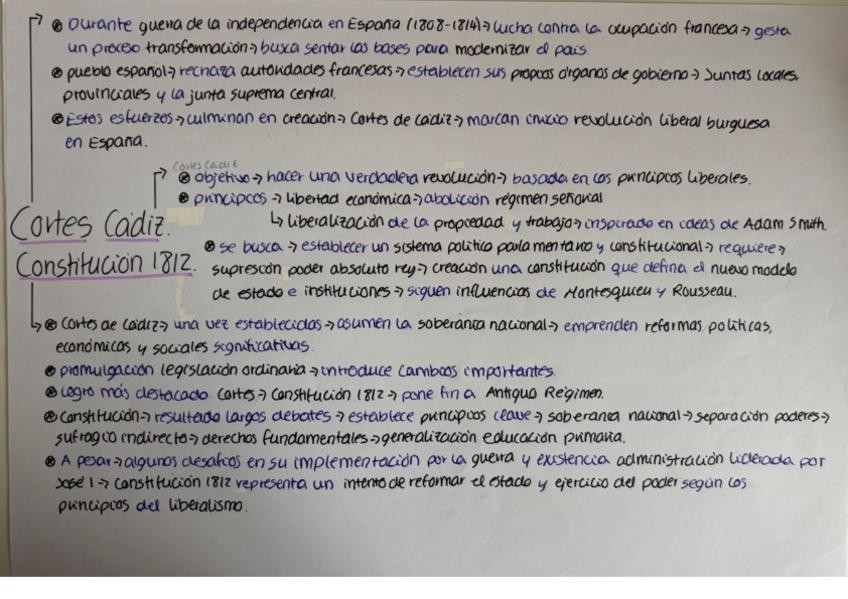 Durante guerra de la independencia en España (1808-1814)→ lucha contra la ocupación francesa→ gesta
un proceso transformación→ busca sentar las bases para modernizar el país.
pueblo español→ rechaza autoridades francesas→ establecen sus propios órganos de gobierno→ Juntas locales,
provinciales y la junta suprema central.
Estos esfuerzos→ culminan en creación→ Cortes de cádiz→ marcan inicio revolución liberal burguesa
en España.
Cortes Cádiz
objetivo→ hacer una verdadera revolución→ basada en los principios liberales.
principios→ libertad económica→ abolición régimen señorial
↳ liberalización de la propiedad y trabajo→ inspirado en ideas de Adam Smith.
Cortes Cádiz.
Constitución 1812.
se busca→ establecer un sistema político parlamentario y constitucional→ requiere→
supresión poder absoluto rey→ creación una constitución que defina el nuevo modelo
de estado e instituciones→ siguen influencias de Montesquieu y Rousseau.
Cortes de cádiz→ una vez establecidas→ asumen la soberanía nacional→ emprenden reformas políticas,
económicas y sociales significativas.
promulgación legislación ordinaria→ introduce cambios importantes.
Logro más destacado cortes→ Constitución 1812→ pone fin a Antiguo Régimen.
Constitución→ resultado largos debates→ establece principios clave→ soberanía nacional→ separación poderes→
sufragio indirecto→ derechos fundamentales→ generalización educación primaria.
A pesar→ algunos desafíos en su implementación por la guerra y existencia administración liderada por
José I→ Constitución 1812 representa un intento de reformar el estado y ejercicio del poder según los
principios del liberalismo.